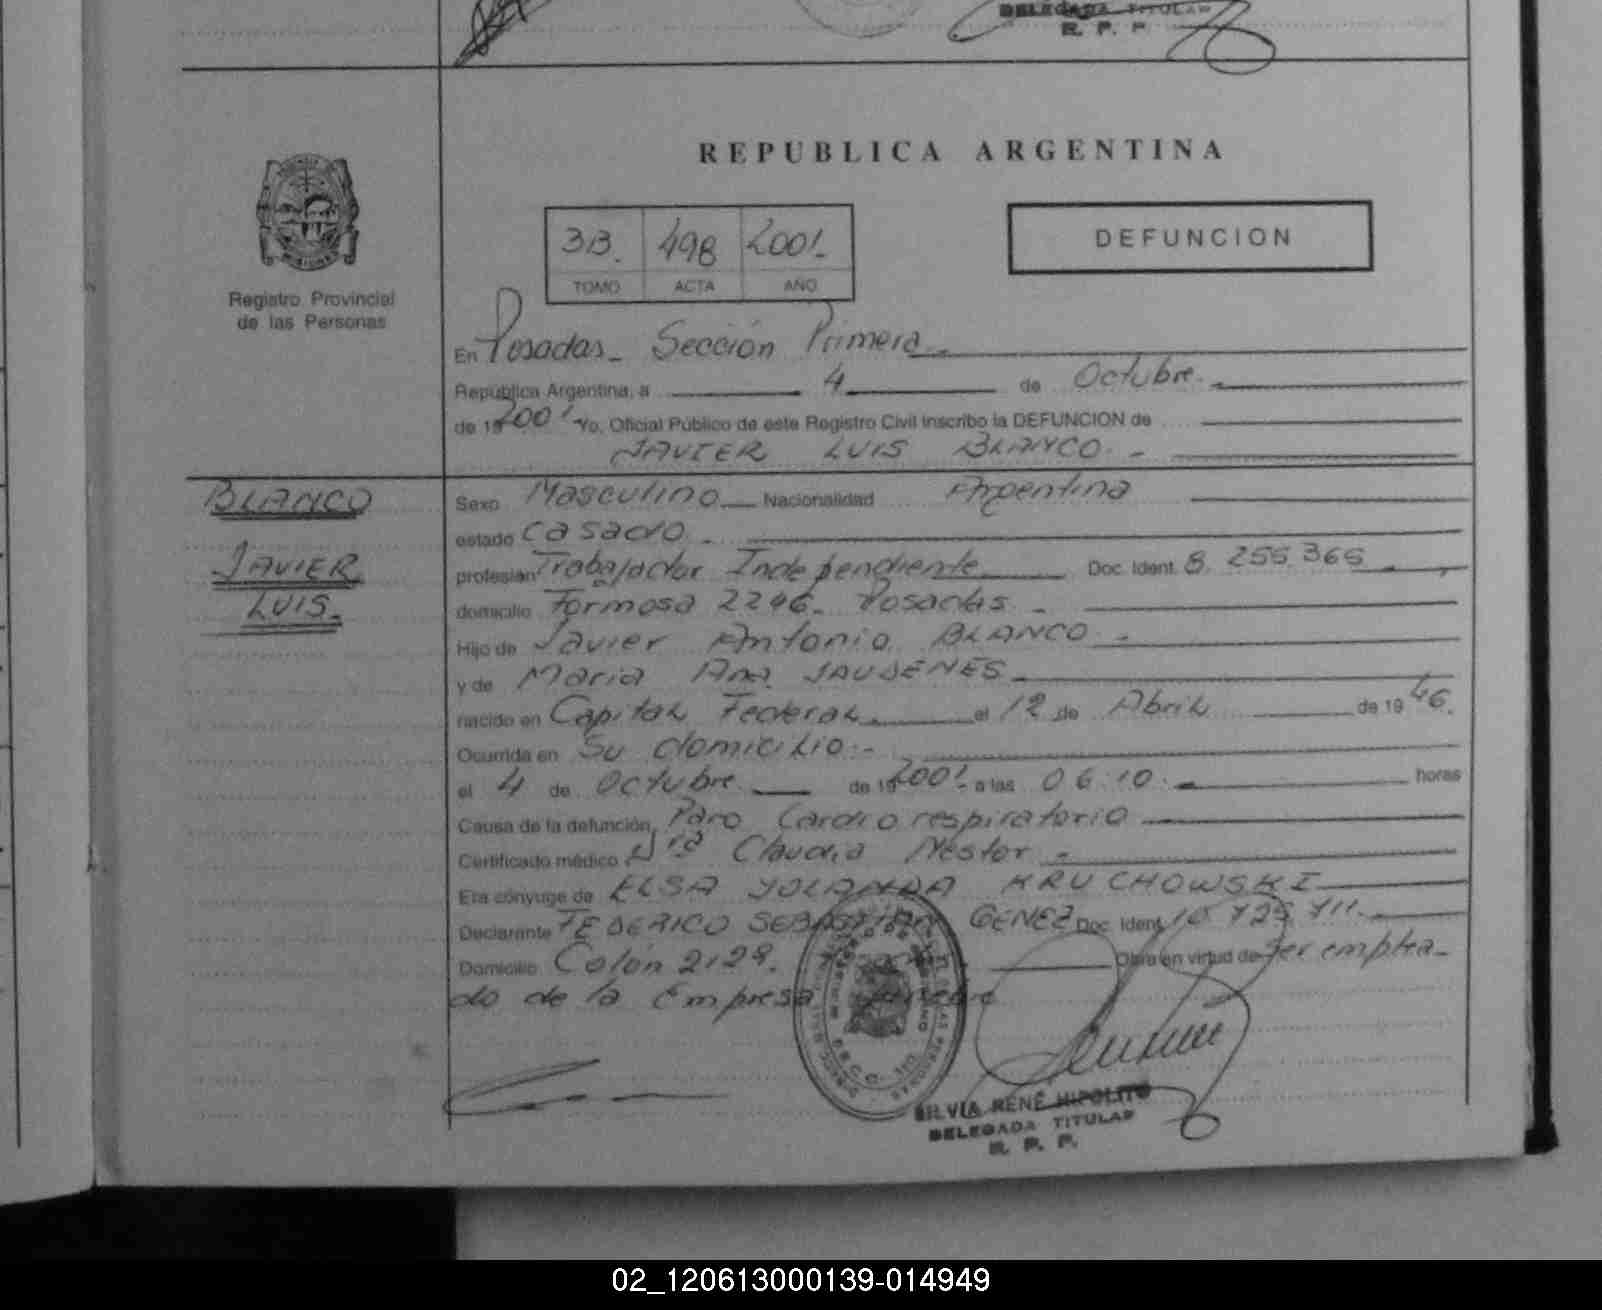 DELEGADA TITULAR
R. P. P.
REPUBLICA ARGENTINA
3B. 498 2001.
TOMO ACTA AÑO
DEFUNCION
Registro Provincial
de las Personas
En Posadas - Sección Primera
República Argentina, a 4 de Octubre.
de 19 2001 Yo, Oficial Público de este Registro Civil inscribo la DEFUNCION de
JAVIER LUIS BLANCO. -
BLANCO
JAVIER
LUIS.-
Sexo Masculino Nacionalidad Argentina
estado casado.
profesión Trabajador Independiente Doc. Ident. 8. 255.365
domicilio Formosa 2246. Posadas -
Hijo de Javier Antonio BLANCO -
y de Maria Ana JAUDENES
nacido en Capital Federal el 12 de Abril de 19 46.
Ocurrida en Su domicilio.-
el 4 de Octubre de 19 2001- a las 06:10. horas
Causa de la defunción Paro Cardio respiratorio
Certificado médico Dra Claudia Nestor -
Era cónyuge de ELSA YOLANDA KRUCHOWSKI
Declarante FEDERICO SEBASTIAN GENEZ Doc. Ident. 10.725.711.
Domicilio Colón 2129. Obra en virtud de Ser emplea-
do de la Empresa
SILVIA RENÉ HIPOLITO
DELEGADA TITULAR
R. P. P.
02_120613000139-014949